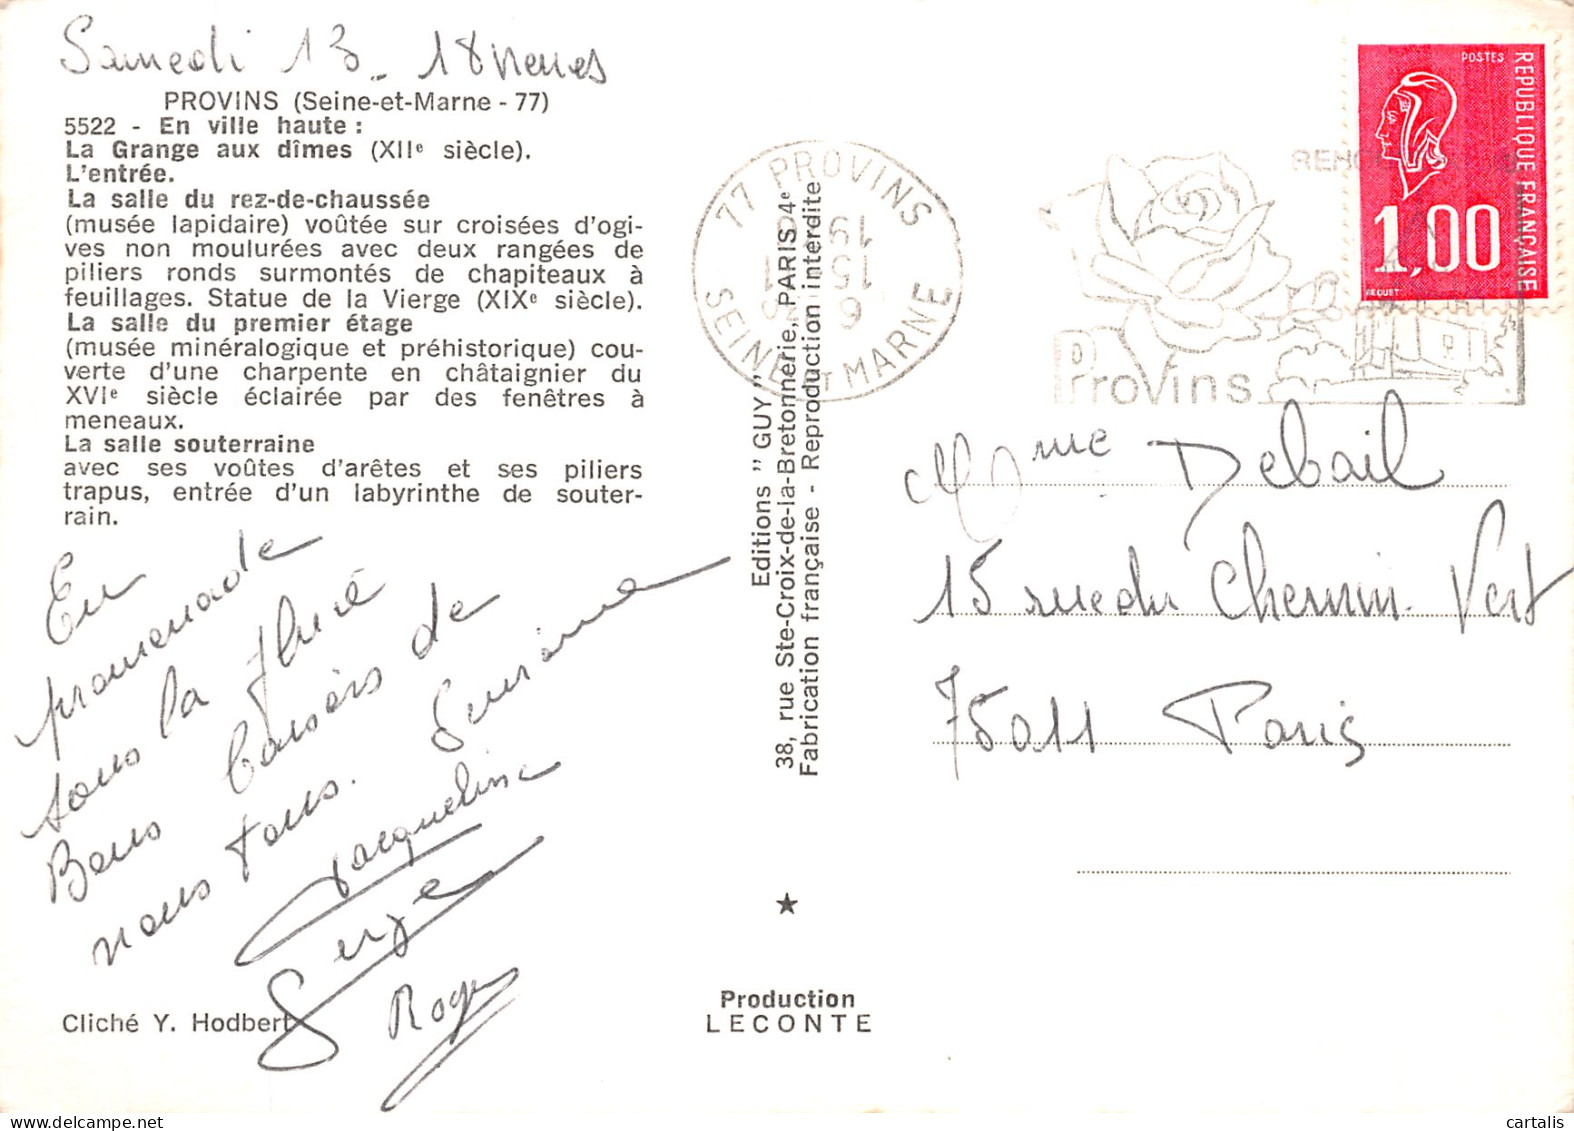 Samedi 13 - 18 heures
PROVINS (Seine-et-Marne - 77)
5522 - En ville haute :
La Grange aux dîmes (XIIe siècle).
L'entrée.
La salle du rez-de-chaussée
(musée lapidaire) voûtée sur croisées d'ogi-
ves non moulurées avec deux rangées de
piliers ronds surmontés de chapiteaux à
feuillages. Statue de la Vierge (XIXe siècle).
La salle du premier étage
(musée minéralogique et préhistorique) cou-
verte d'une charpente en châtaignier du
XVIe siècle éclairée par des fenêtres à
meneaux.
La salle souterraine
avec ses voûtes d'arêtes et ses piliers
trapus, entrée d'un labyrinthe de souter-
rain.
En
promenade
sous la pluie
Bons baisers de
nous tous.
Jacqueline
Serge
Roger
Cliché Y. Hodbert
Editions " GUY "
38, rue Ste-Croix-de-la-Bretonnerie, PARIS 4e
Fabrication française - Reproduction interdite
Production
LECONTE
77 PROVINS
SEINE ET MARNE
19
15
9
Provins
POSTES
REPUBLIQUE FRANÇAISE
1,00
BEQUET
Mme Debail
15 rue du Chemin Vert
75011 Paris
cartalis